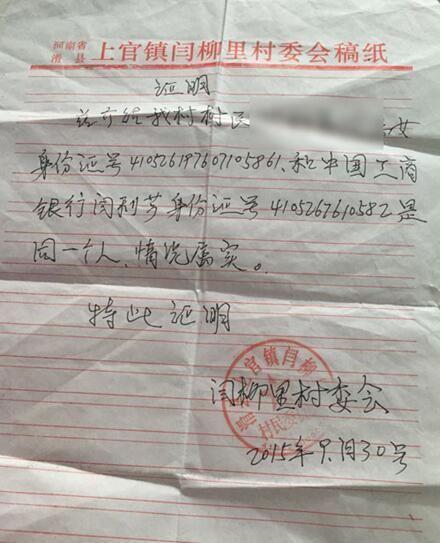 河南省
滑县 上官镇闫柳里村委会稿纸
证明
兹介绍我村村民 女
身份证号410526197607105861、和中国工商
银行闫利芳身份证号4105267610582是
同一个人，情况属实。
特此证明
官镇闫柳
村民委
闫柳里村委会
2015年9月30号